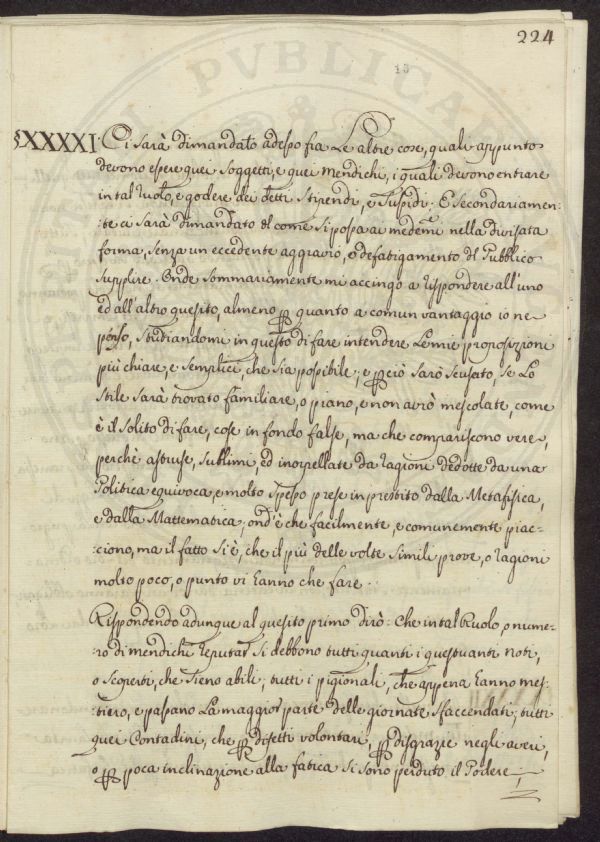 224
13
§XXXXI. Ci sarà dimandato adesso fra le altre cose, quali appunto
devono essere quei Soggetti, e quei Mendichi, i quali devono entrare
in tal Ruolo, e godere dei detti Stipendj, e Sussidj. E secondariamen=
=te ci sarà dimandato del come si possa ai medemi nella divisata
forma, senza un eccedente aggravio, e defatigamento del Pubblico
supplire. Onde sommariamente mi accingo a rispondere all'uno
ed all'altro quesito, almeno p quanto a comun vantaggio io ne
penso, studiandomi in questo di fare intendere le mie proposizioni
più chiare, e semplici, che sia possibile; e pciò sarò scusato, se lo
stile sarà trovato familiare, o piano, e non avrò mescolate, come
è il solito di fare, cose in fondo false, ma che compariscono vere,
perchè astruse, sublimi, ed inorpellate da ragioni dedotte da una
Politica equivoca, e molto spesso prese in prestito dalla Metafisica,
e dalla Mattematica, ond'è che facilmente, e comunemente piac=
=ciono, ma il fatto si è, che il più delle volte simili prove, o ragioni
molto poco, o punto vi hanno che fare.
Rispondendo adunque al quesito primo dirò: Che in tal Ruolo, o nume=
ro di mendichi reputar si debbono tutti quanti i questuanti noti,
o scoperti, che sieno abili; tutti i pigionali, che appena hanno mes=
tiero, e passano la maggior parte delle giornate sfaccendati; tutti
quei Contadini, che p difetti volontarj, p disgrazie negli averi,
o p poca inclinazione alla fatica si sono perduto il Podere;
PVBLICAE